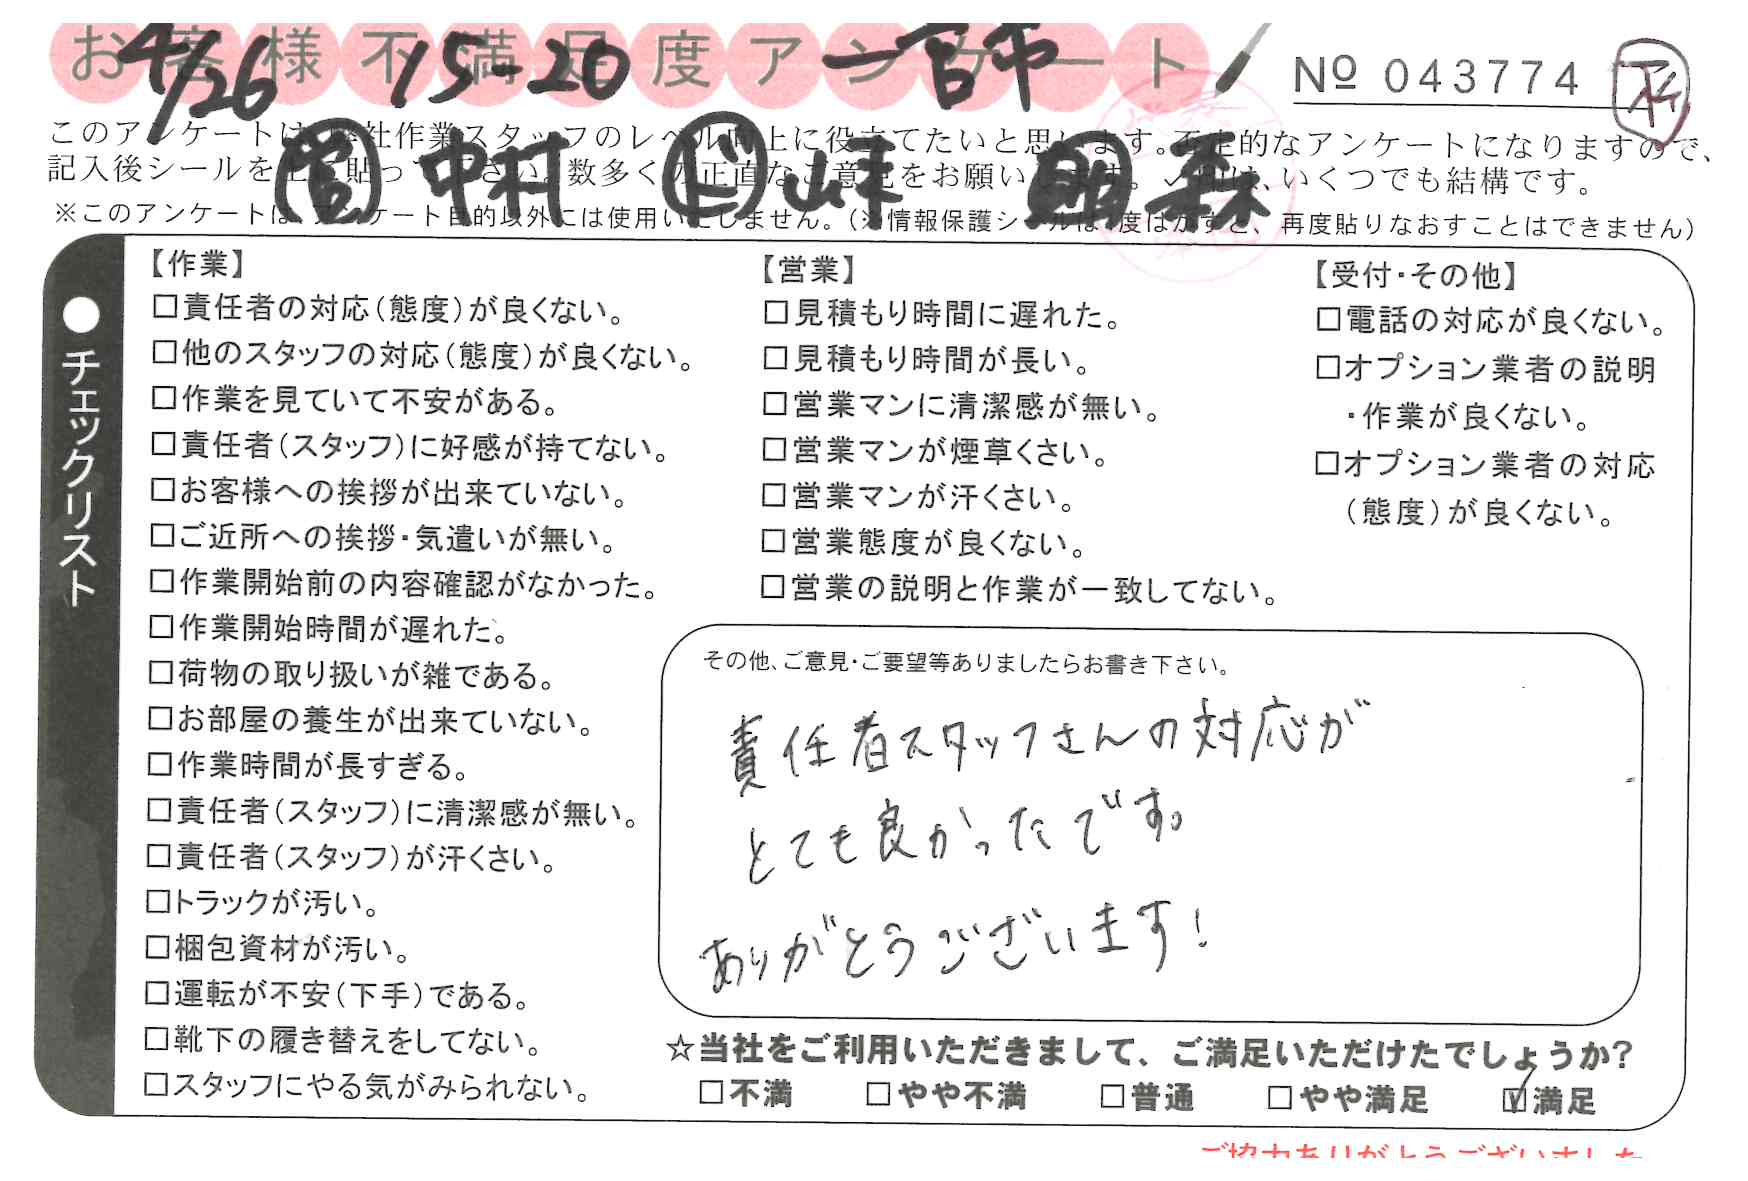 お客様不満足度アンケート
4/26 15-20 一宮市
№ 043774
このアンケートは、弊社作業スタッフのレベル向上に役立てたいと思います。否定的なアンケートになりますので、
記入後シールを上に貼って下さい。数多くの正直なご意見をお願いします。✓印は、いくつでも結構です。
中村 ド 山本 森
※このアンケートは、アンケート目的以外には使用いたしません。(※情報保護シールは1度はがすと、再度貼りなおすことはできません)
●チェックリスト
【作業】
□責任者の対応(態度)が良くない。
□他のスタッフの対応(態度)が良くない。
□作業を見ていて不安がある。
□責任者(スタッフ)に好感が持てない。
□お客様への挨拶が出来ていない。
□ご近所への挨拶・気遣いが無い。
□作業開始前の内容確認がなかった。
□作業開始時間が遅れた。
□荷物の取り扱いが雑である。
□お部屋の養生が出来ていない。
□作業時間が長すぎる。
□責任者(スタッフ)に清潔感が無い。
□責任者(スタッフ)が汗くさい。
□トラックが汚い。
□梱包資材が汚い。
□運転が不安(下手)である。
□靴下の履き替えをしてない。
□スタッフにやる気がみられない。
【営業】
□見積もり時間に遅れた。
□見積もり時間が長い。
□営業マンに清潔感が無い。
□営業マンが煙草くさい。
□営業マンが汗くさい。
□営業態度が良くない。
□営業の説明と作業が一致してない。
【受付・その他】
□電話の対応が良くない。
□オプション業者の説明
・作業が良くない。
□オプション業者の対応
(態度)が良くない。
その他、ご意見・ご要望等ありましたらお書き下さい。
責任者スタッフさんの対応が
とても良かったです。
ありがとうございます!
☆当社をご利用いただきまして、ご満足いただけたでしょうか?
□不満 □やや不満 □普通 □やや満足 ☑満足
ご協力ありがとうございました